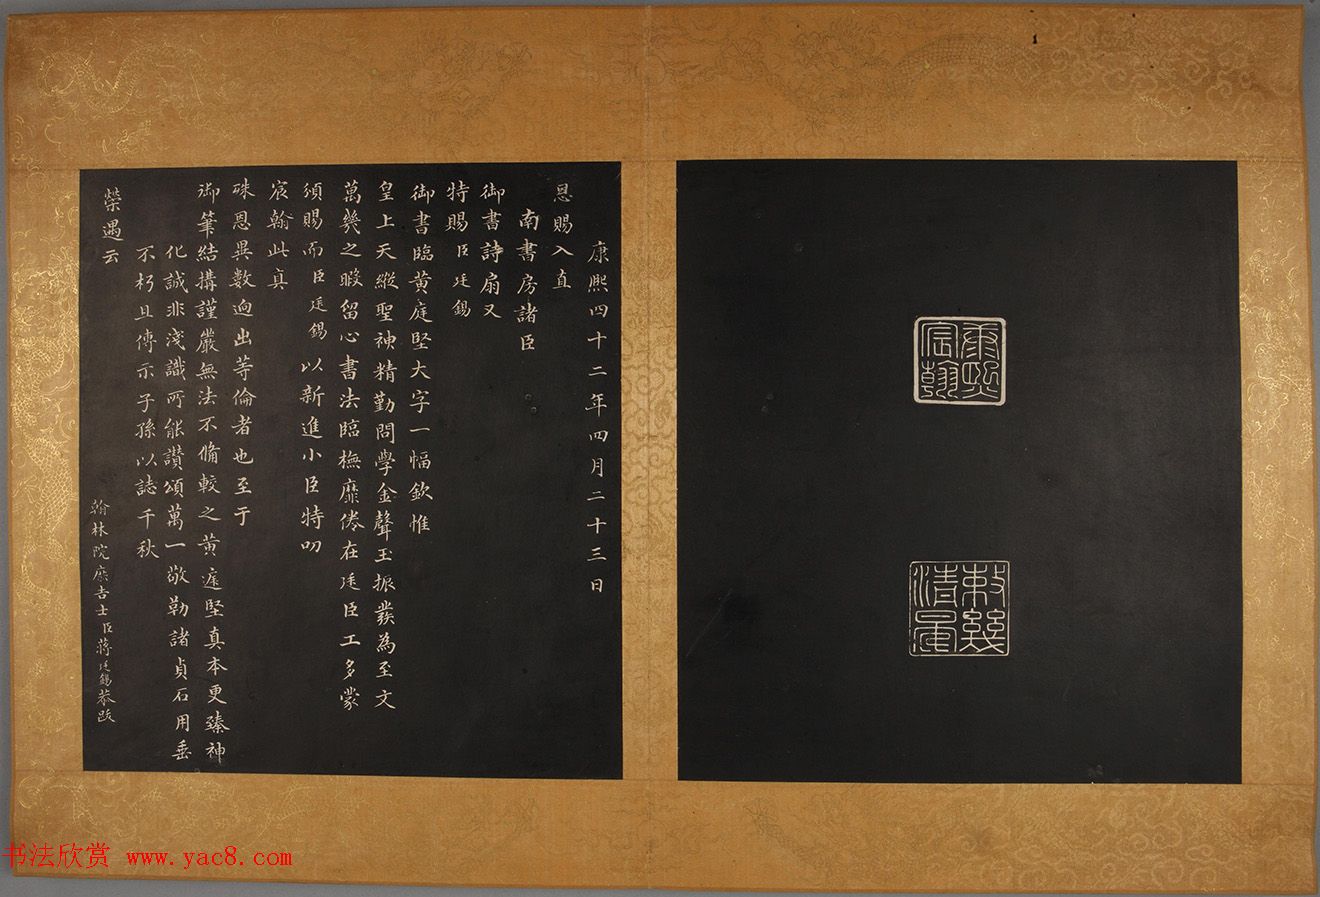 康熙宸翰
敕幾清晏
康熙四十二年四月二十三日
恩賜入直
南書房諸臣
御書詩扇又
特賜臣廷錫
御書臨黃庭堅大字一幅欽惟
皇上天縱聖神精勤問學金聲玉振發為至文
萬幾之暇留心書法臨橅靡倦在廷臣工多蒙
頒賜而臣廷錫以新進小臣特叨
宸翰此真
殊恩異數迥出等倫者也至于
御筆結搆謹嚴無法不備較之黃庭堅真本更臻神
化誠非淺識所能讚頌萬一敬勒諸貞石用垂
不朽且傳示子孫以誌千秋
榮遇云
翰林院庶吉士臣蔣廷錫恭跋
书法欣赏 www.yac8.com